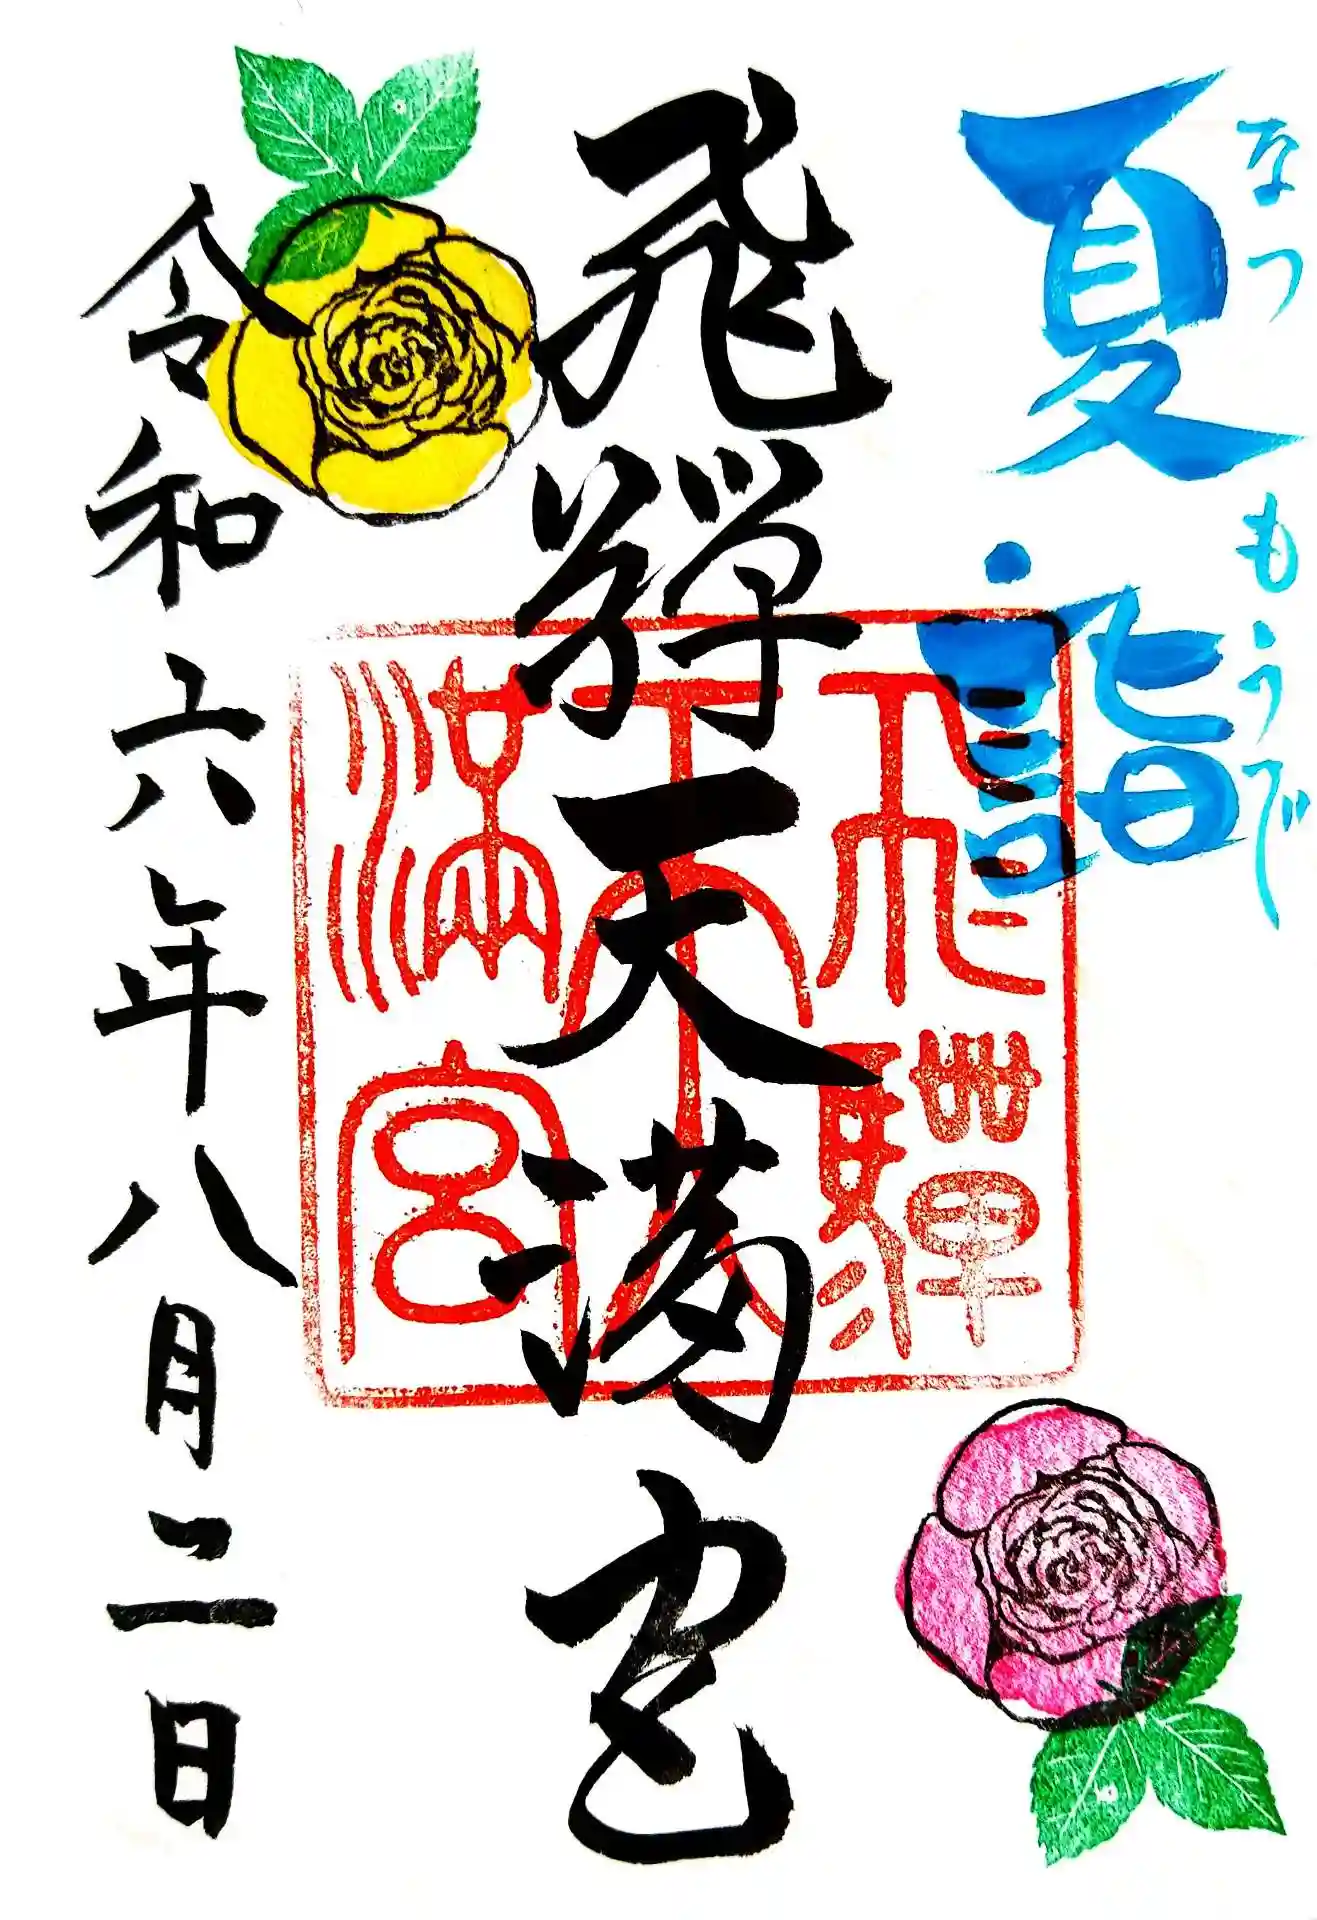 夏詣
なつもうで
飛騨天満宮
飛驒天満宮
令和六年八月二日